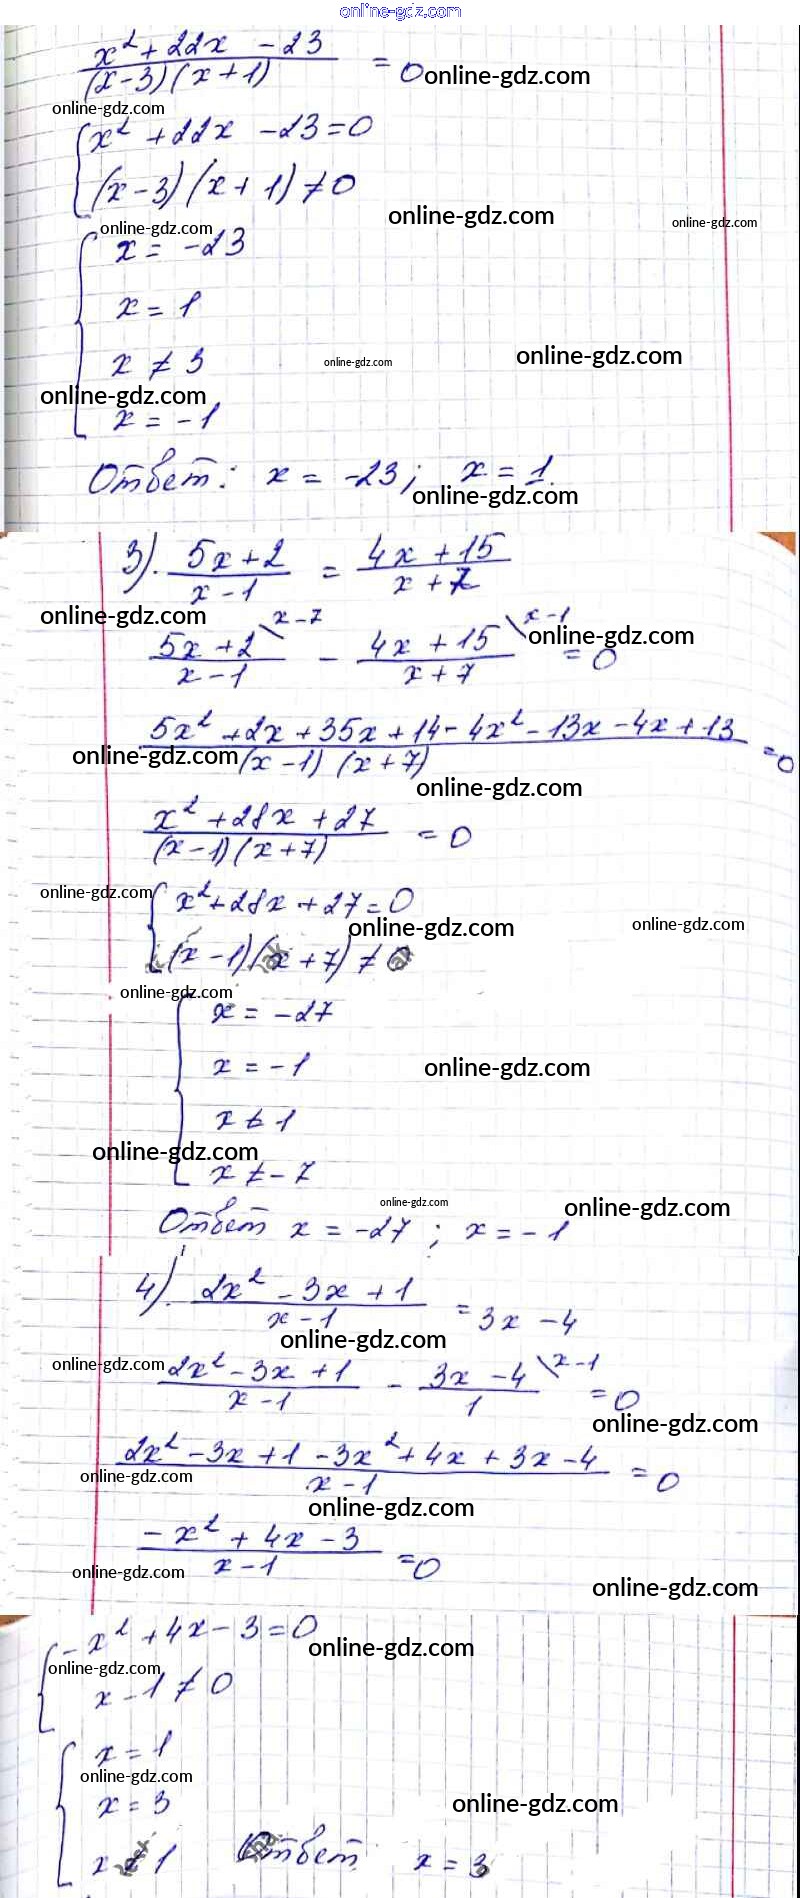 online-gdz.com
x² + 22x - 23
(x-3)(x+1) = 0 online-gdz.com
online-gdz.com
x² + 22x - 23 = 0
(x-3)(x+1) ≠ 0
online-gdz.com online-gdz.com
online-gdz.com
x = -23
x = 1
x ≠ 3 online-gdz.com online-gdz.com
online-gdz.com
x = -1
Ответ: x = -23; x = 1.
online-gdz.com
3). 5x+2 / x-1 = 4x+15 / x+7
online-gdz.com
5x+2 / x-1 \x-7 - 4x+15 / x+7 \x-1 = 0
online-gdz.com
5x² + 2x + 35x + 14 - 4x² - 13x - 4x + 13
online-gdz.com (x-1)(x+7) = 0
online-gdz.com
x² + 28x + 27
(x-1)(x+7) = 0
online-gdz.com x² + 28x + 27 = 0
online-gdz.com online-gdz.com
(x-1)(x+7) ≠ 0
online-gdz.com
x = -27
x = -1 online-gdz.com
x ≠ 1
online-gdz.com
x ≠ -7
online-gdz.com online-gdz.com
Ответ x = -27; x = -1
4). 2x² - 3x + 1 / x-1 = 3x - 4
online-gdz.com
online-gdz.com 2x² - 3x + 1 / x-1 - 3x-4 / 1 \x-1 = 0
online-gdz.com
2x² - 3x + 1 - 3x² + 4x + 3x - 4
online-gdz.com x-1 = 0
online-gdz.com
-x² + 4x - 3
x-1 = 0
online-gdz.com online-gdz.com
-x² + 4x - 3 = 0
online-gdz.com
online-gdz.com
x - 1 ≠ 0
x = 1
online-gdz.com
x = 3 online-gdz.com
x ≠ 1 Ответ x = 3